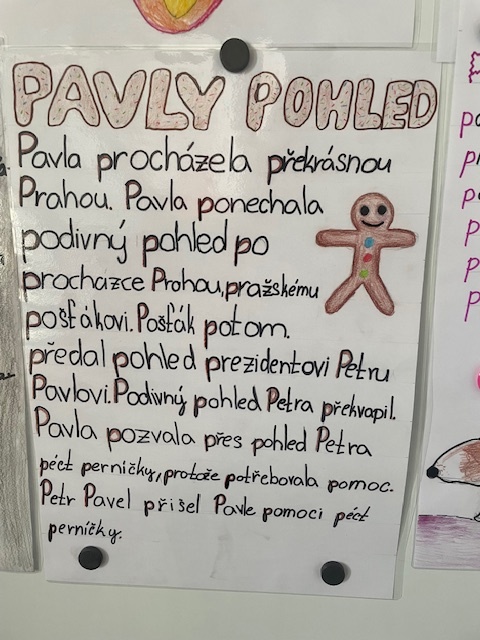 PAVLY POHLED
Pavla procházela překrásnou
Prahou. Pavla ponechala
podivný pohled po
procházce Prahou, pražskému
pošťákovi. Pošťák potom.
předal pohled prezidentovi Petru
Pavlovi. Podivný pohled Petra překvapil.
Pavla pozvala přes pohled Petra
péct perníčky, protože potřebovala pomoc.
Petr Pavel přišel Pavle pomoci péct
perníčky.